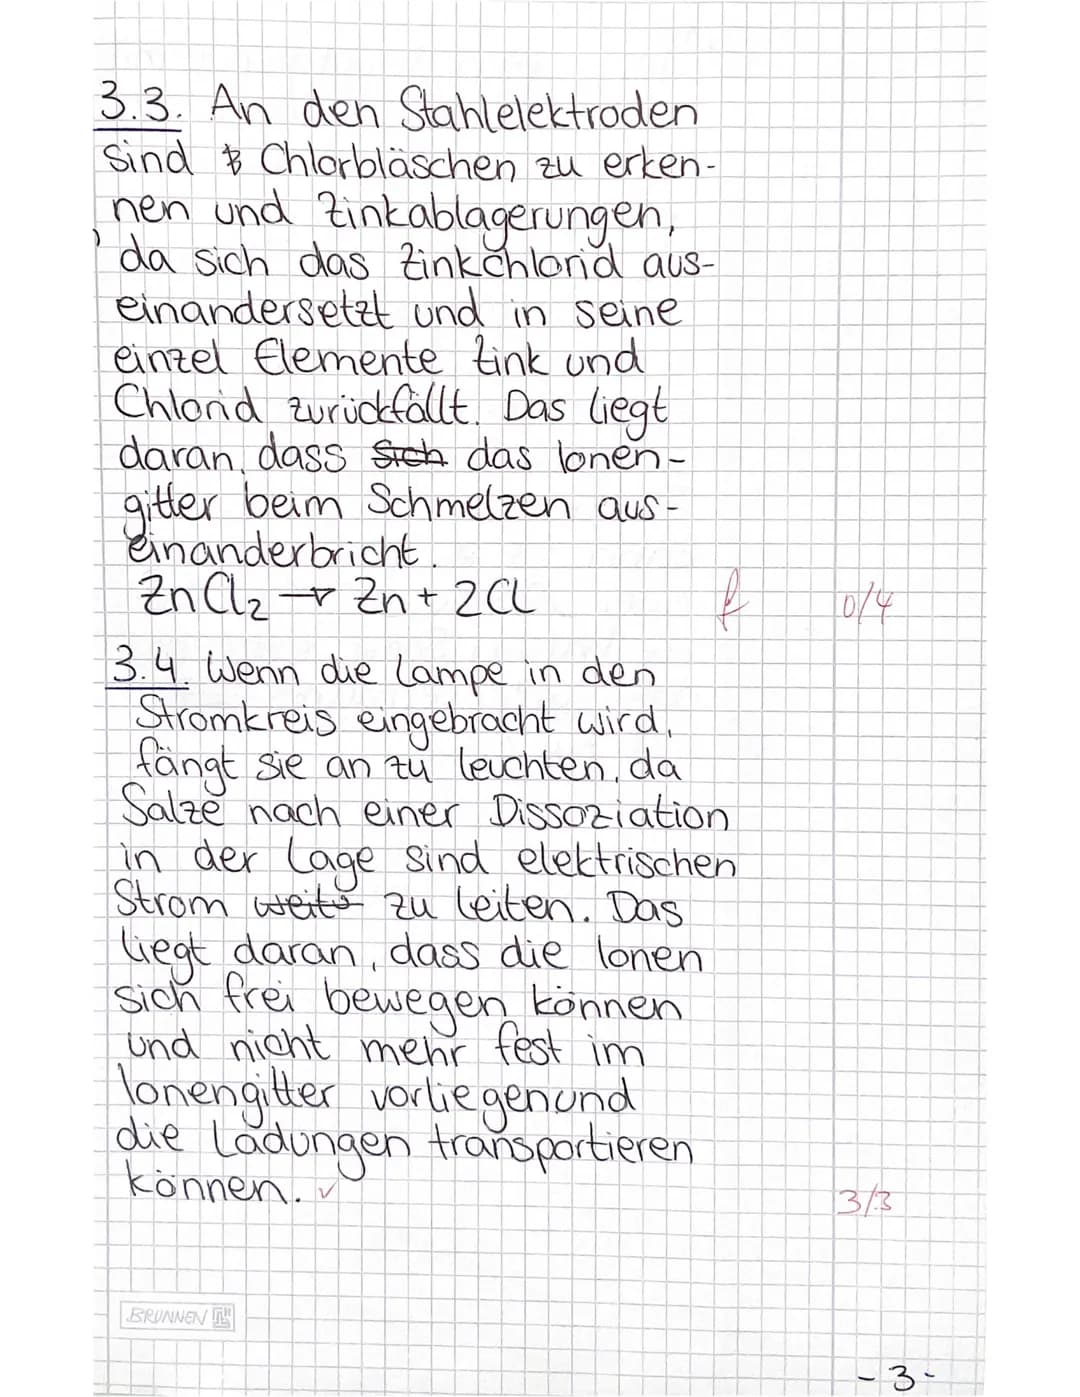 3.3. An den Stahlelektroden
sind Chlorbläschen zu erken-
nen und Zinkablagerungen,
da sich das Zinkchlorid aus-
einandersetzt und in seine
einzel Elemente Zink und
Chlorid zurückfällt. Das liegt
daran, dass sich das Ionen-
gitter beim Schmelzen aus-
einanderbricht.
ZnCl₂ → Zn + 2Cl f 0/4
3.4. Wenn die Lampe in den
Stromkreis eingebracht wird,
fängt sie an zu leuchten, da
Salze nach einer Dissoziation
in der Lage sind elektrischen
Strom zu leiten. Das
liegt daran, dass die Ionen
sich frei bewegen können
und nicht mehr fest im
Ionengitter vorliegen und
die Ladungen transportieren
können. ✓ 3/3
BRUNNEN
- 3 -